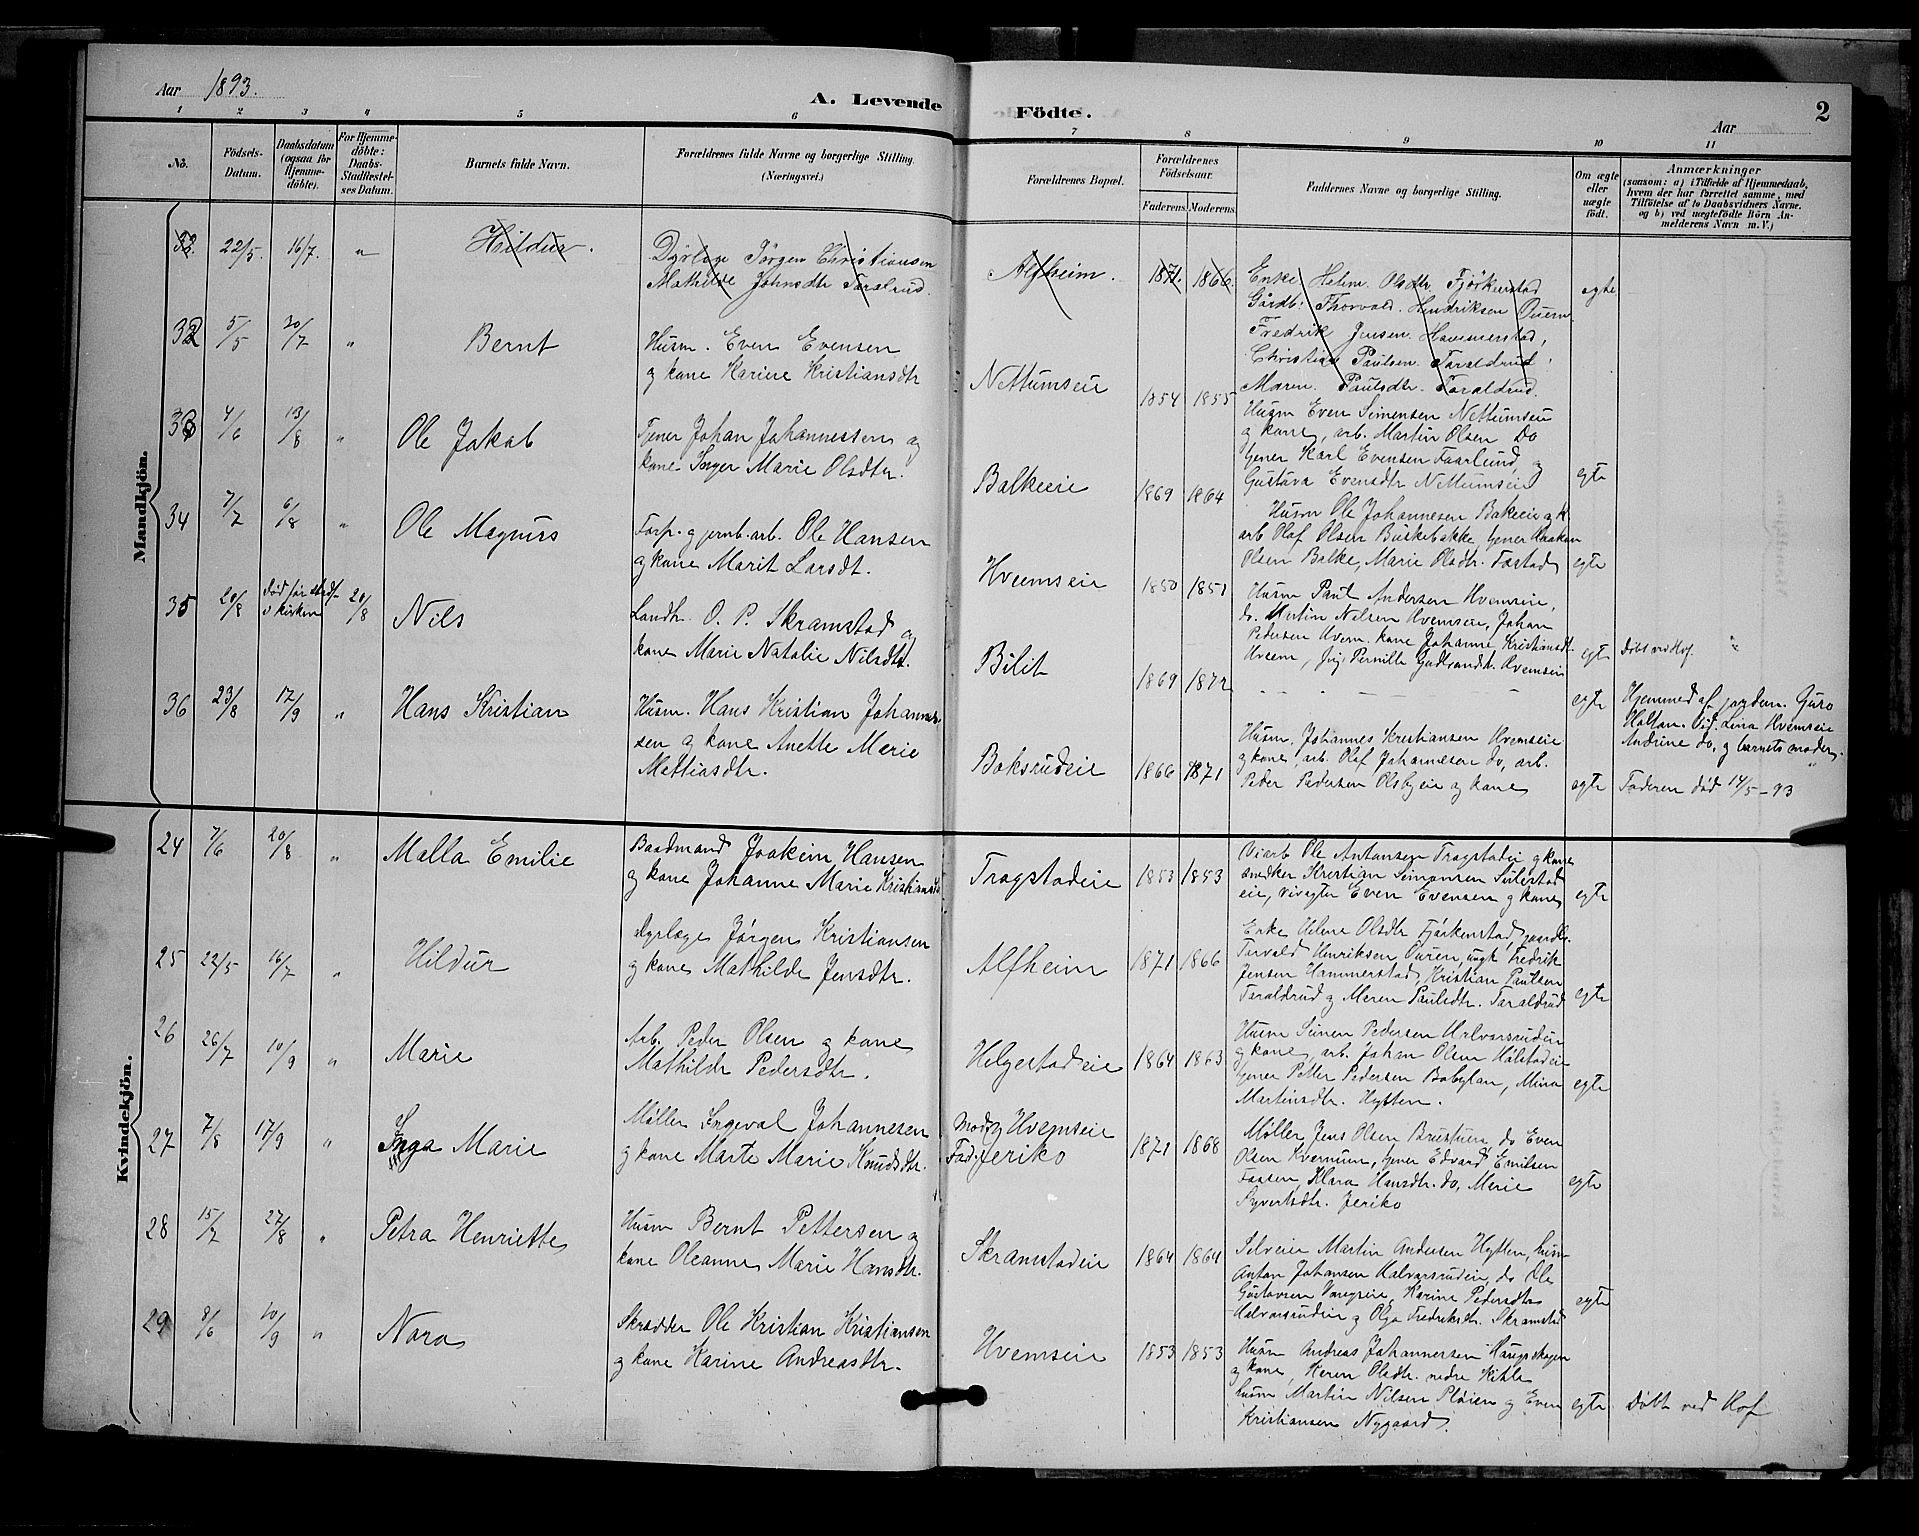 Aar 1893.
A. Levende Födte.
Aar
2
1 2 3 4 5 6 7 8 9 10 11
No.
Födsels-Datum.
Daabsdatum (ogsaa for Hjemme-döbte).
For Hjemme-döbte: Daabs-Stadfæstel-ses Datum.
Barnets fulde Navn.
Forældrenes fulde Navne og borgerlige Stilling.
(Næringsvei.)
Forældrenes Bopæl.
Forældrenes Födselsaar.
Faderens. Moderens.
Faddernes Navne og borgerlige Stilling.
Om ægte eller uægte födt.
Anmærkninger
(saasom: a) i Tilfælde af Hjemmedaab,
hvem der har forrettet samme, med
Tilföielse af to Daabsvidners Navne.
og b) ved uægtefödte Börn An-
melderens Navn m. V.)
Mandkjön.
32 22/5 16/7 " Hildur.
Dyrlæge Jørgen Christiansen
Mathilde Johnsdtr Taralrud.
Alfheim. 1871. 1866.
Enke Helene Olsdtr. Fjørkenstad
Gårdb. Thorvald Hendriksen Ouern
Fredrik Jensen Hammerstad,
Christian Paulsen Taraldrud,
Maren Paulsdtr. Taraldrud.
egte
32 5/5 30/7 " Bernt
Husm. Even Evensen
og kone Karine Kristiansdtr
Nettumseie 1854 1855
Husm Even Simensen Nettumseie
og kone, arb. Martin Olsen do
tjener Karl Evensen Faarlund, og
Gustava Evensdtr Nettumseie
egte
33 4/6 13/8 " Ole Jakob
Tjener Johan Johannessen og
kone Inger Marie Olsdtr.
Balkeeie 1869 1864
Husm Ole Johannesen Bakeeie og k
arb Olaf Olsen Buskebakke, tjener Haakon
Olsen Balke, Marie Olsdtr. Fostad
egte
34 7/7 6/8 " Ole Magnus
Forp. og jernb. arb. Ole Hansen
og kone Marit Larsdt.
Hveemseie 1850 1851
Husm Paul Andersen Hvemseie,
do. Martin Nilsen Hvemseie, Johan
Pedersen Hvem. kone Johanne Kristiansdt.
Hveem, Pernille Gudbrandsdt. Hvemseie
egte Døbt ved Hof. "
35 20/8 død før stadf. i kirken 20/8 Nils
Landh. O. P. Skramstad og
kone Marie Natalie Nilsdt.
Bilit 1869 1872
egte Hjemmed af jordem. Guro
Holtan. Vid. Lina Hvemseie
Andrine do, og barnets moder.
36 23/8 17/9 " Hans Kristian
Husm. Hans Kristian Johannes-
sen og kone Anette Marie
Mattiasdtr.
Boksrudeie 1866 1871
Husm. Johannes Kristiansen Hvemseie
og kone, arb. Olaf Johannesen do, arb.
Peder Pedersen Olsbyeie og kone
egte Faderen død 14/5-93
Kvindekjön.
24 7/6 20/8 " Malla Emilie
Baadmand Joakim Hansen
og kone Johanne Marie Kristiansdtr
Trogstadeie 1853 1853
Ole Antonsen Trogstadeie og kone
snedker Kristian Simonsen Seilestad
eie, Even Evensen og kone
egte
25 22/5 16/7 " Hildur
Dyrlæge Jørgen Kristiansen
og kone Mathilde Jensdtr.
Alfheim 1871 1866
Enke Helene Olsdtr Fjørkenstad, gaardbr.
Torvald Henriksen Ouren, ungk Fredrik
Jensen Hammerstad, Kristian Paulsen
Taraldrud og Maren Paulsdtr. Taraldrud
egte
26 26/7 10/9 " Marie
Arb. Peder Olsen og kone
Mathilde Pedersdtr.
Helgestadeie 1864 1863
Husm Simen Pedersen Halvorsrudeie
og kone, arb. Johan Olsen Hølstadeie
tjener Petter Pedersen Babylon, Mina
Martinsdtr. Hytten.
egte
27 7/8 17/9 " Inga Marie
Møller Ingeval Johannesen
og kone Marte Marie Knudsdtr.
Mod: Hvemseie
Fad: Jeriko 1871 1868
Møller Jens Olsen Brustuen, do Even
Olsen Kvernum, tjener Edvard Emilsen
Faasen, Klara Hansdtr. do, Marie
Syvertsdtr. Jeriko
egte
28 15/7 27/8 " Petra Henriette
Husm Bernt Pettersen og
kone Oleanne Marie Hansdtr.
Skramstadeie 1864 1864
Selveier Martin Andersen Hytten, husm
Anton Johansen Halvorsrudeie, do Ole
Gustavsen Vangseie, Karine Pedersdtr
Halvorsrudeie og Olga Fredriksdtr. Skramstad
egte
29 8/6 10/9 " Nora
Skrædder Ole Kristian Kristiansen
og kone Karine Andreasdtr.
Hvemseie 1853 1853
Husm Andreas Johannersen Haugsskogen
og kone, Karen Olsdtr. nedre Kihle
husm Martin Nilsen Pløien og Even
Kristiansen Nygaard.
egte Døbt ved Hof